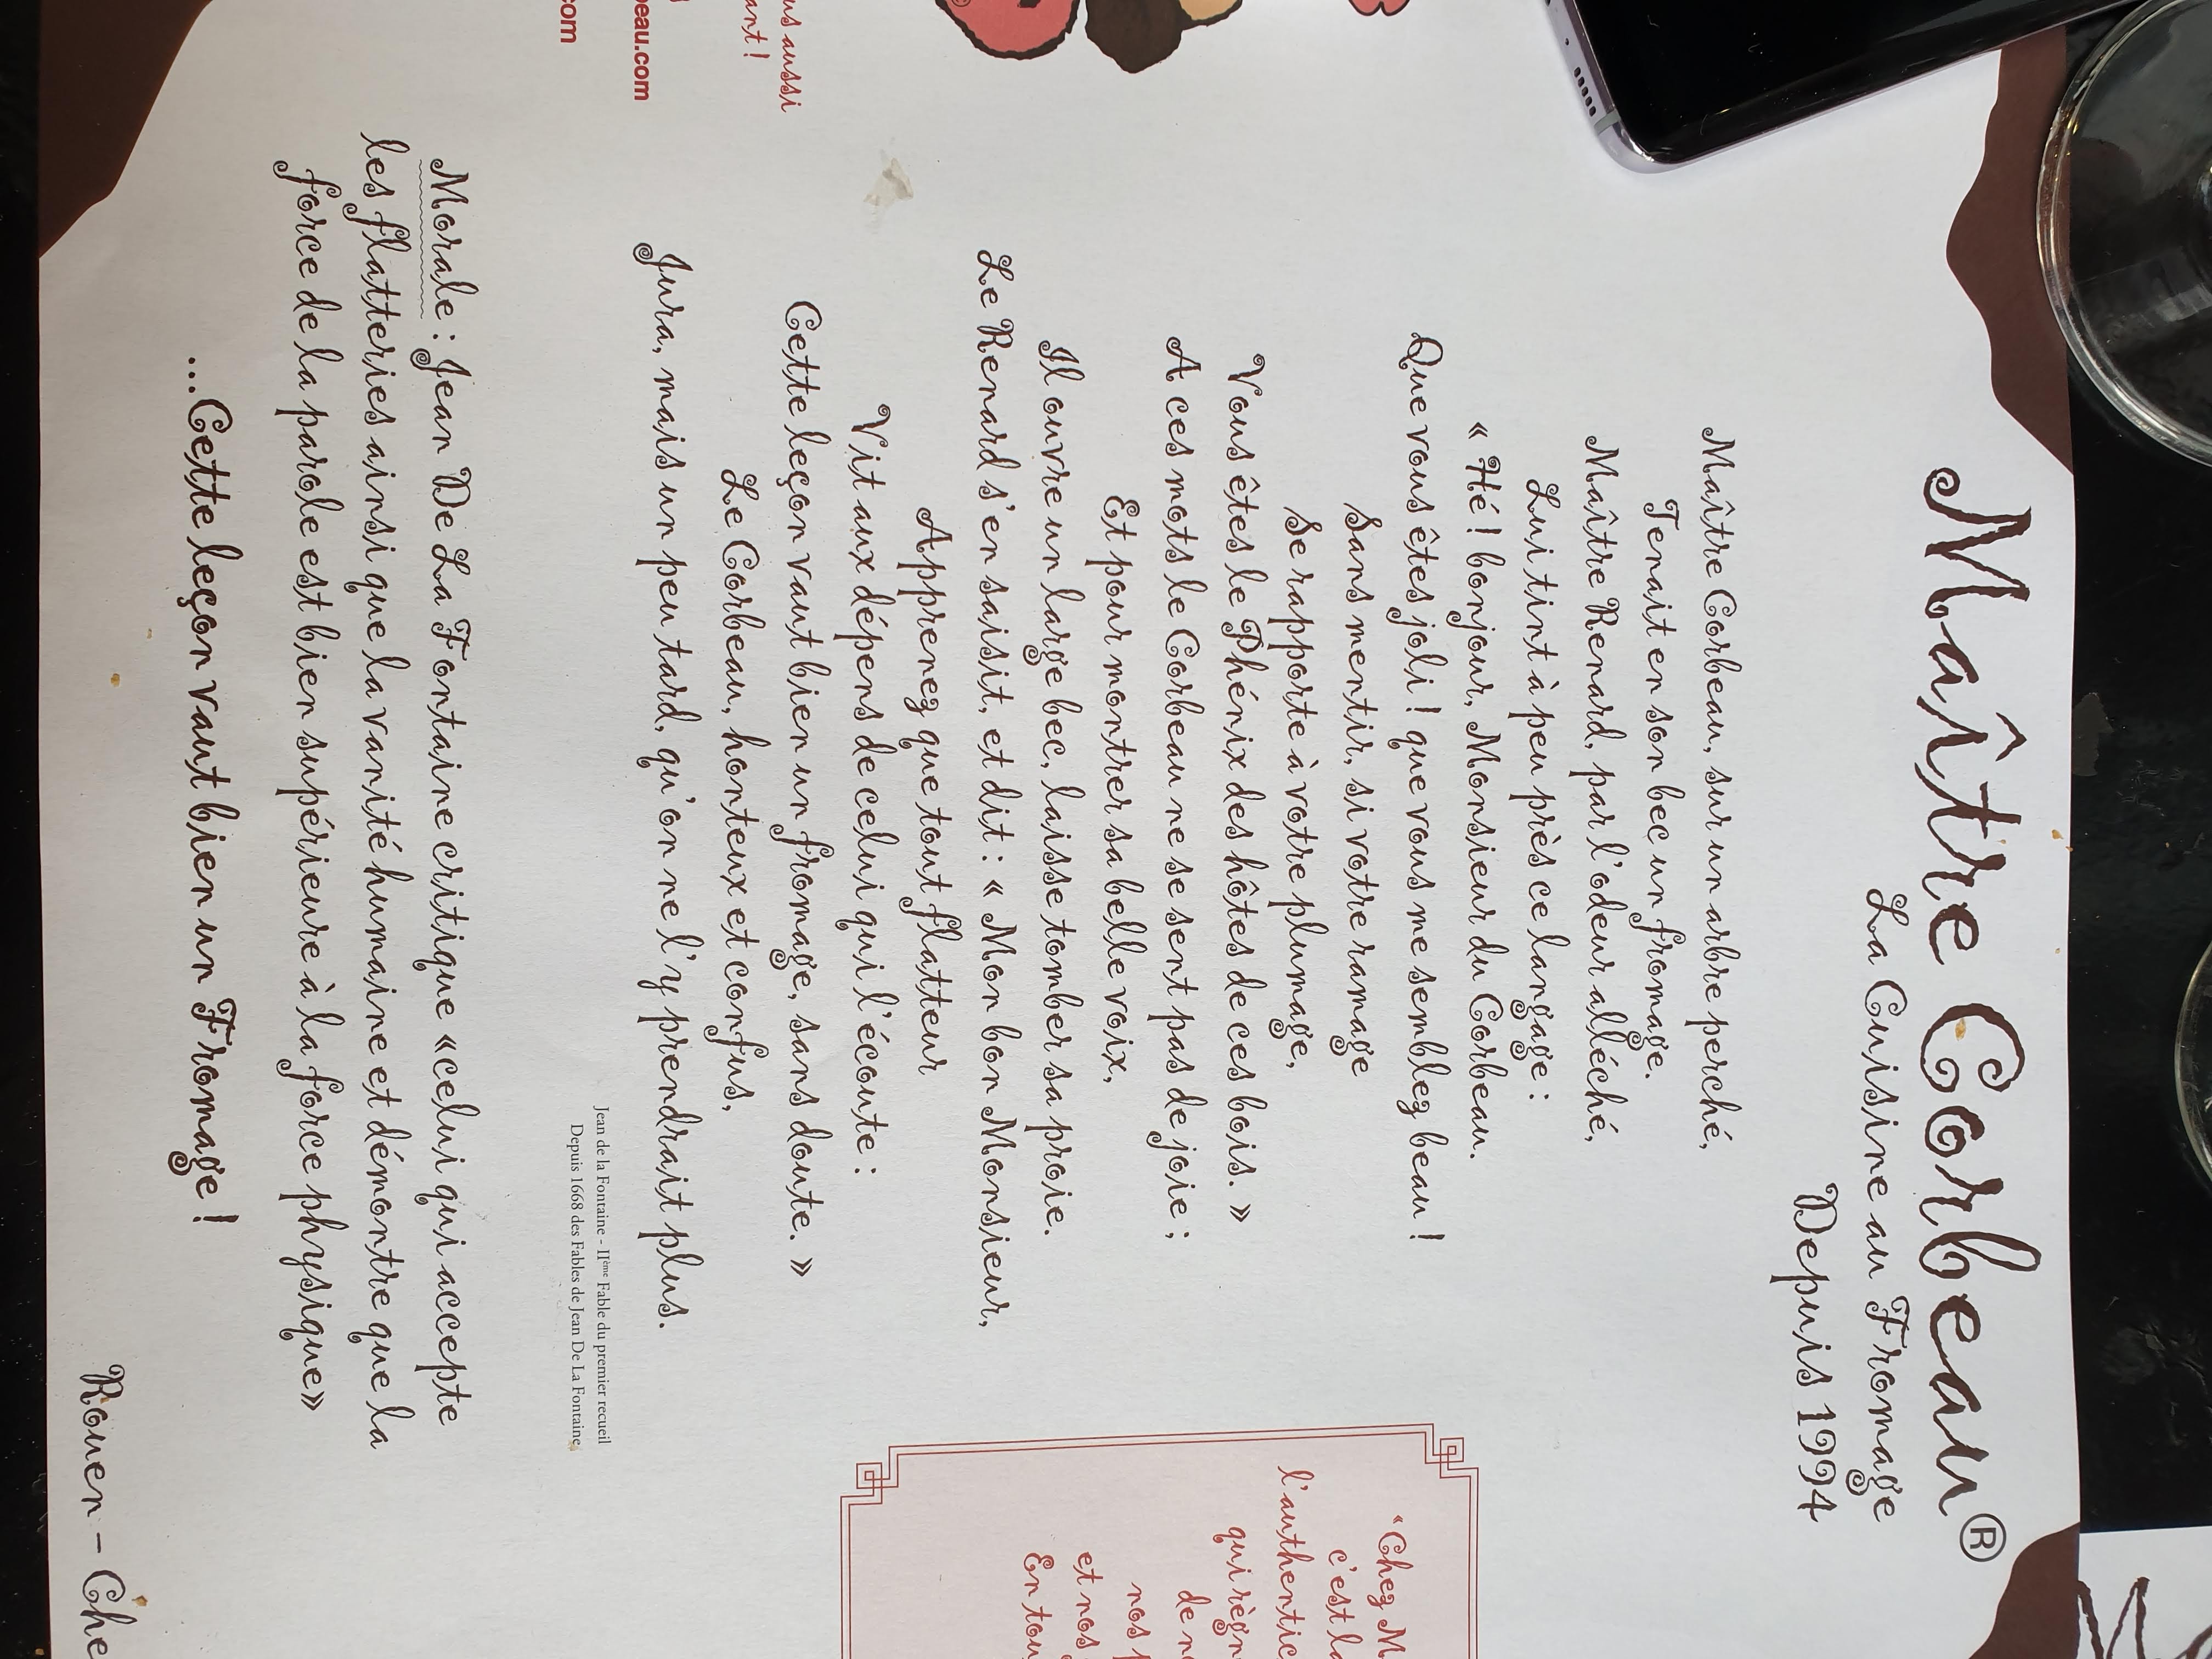 Maître Corbeau®
La Cuisine au Fromage
Depuis 1994
Maître Corbeau, sur un arbre perché,
Tenait en son bec un fromage.
Maître Renard, par l'odeur alléché,
Lui tint à peu près ce langage :
« Hé ! bonjour, Monsieur du Corbeau.
Que vous êtes joli ! que vous me semblez beau !
Sans mentir, si votre ramage
Se rapporte à votre plumage,
Vous êtes le Phénix des hôtes de ces bois. »
A ces mots le Corbeau ne se sent pas de joie ;
Et pour montrer sa belle voix,
Il ouvre un large bec, laisse tomber sa proie.
Le Renard s'en saisit, et dit : « Mon bon Monsieur,
Apprenez que tout flatteur
Vit aux dépens de celui qui l'écoute :
Cette leçon vaut bien un fromage, sans doute. »
Le Corbeau, honteux et confus,
Jura, mais un peu tard, qu'on ne l'y prendrait plus.
Jean de la Fontaine - IIème Fable du premier recueil
Depuis 1668 des Fables de Jean De La Fontaine
Morale : Jean De La Fontaine critique «celui qui accepte
les flatteries ainsi que la vanité humaine et démontre que la
force de la parole est bien supérieure à la force physique»
...Cette leçon vaut bien un Fromage !
Rouen - Che
us aussi
ant !
eau.com
com
"Chez M
c'est la
l'authentic
qui règn
de n
nos
et nos
En tou